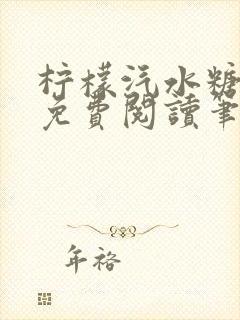 柠檬汽水糖
免費閱讀筆
年裕